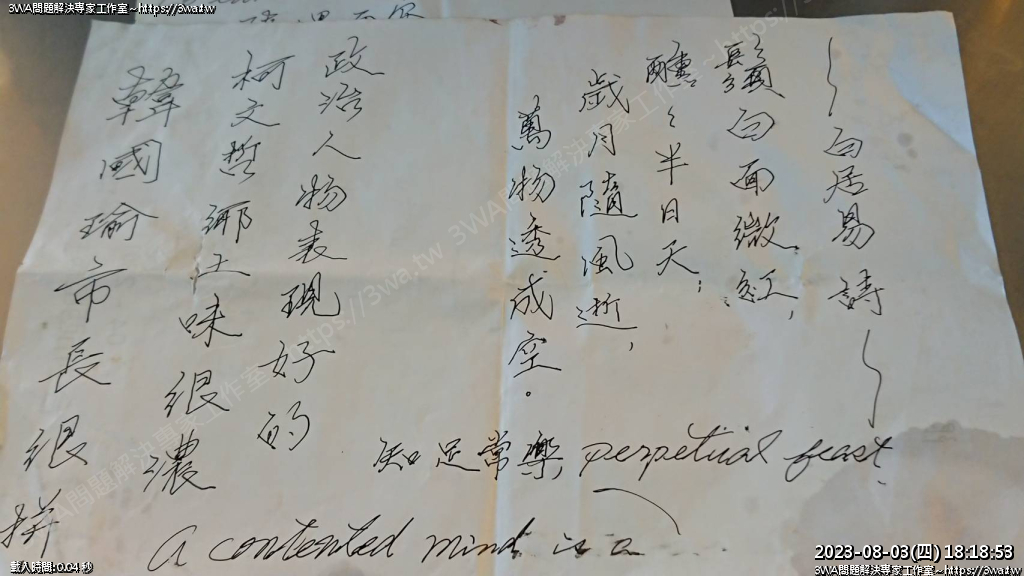 3WA問題解決專家工作室~https://3wa.tw
3WA問題解決專家工作室~https://3wa.tw
~白居易詩~
鬚白面微紅,
醺々半日天,
歲月隨風逝,
萬物透成空。
政治人物表現好的
柯文哲鄉土味很濃
韓國瑜市長很拼
知足常樂 perpetual feast.
A contented mind is a
載入時間:0.04 秒
2023-08-03(四) 18:18:53
3WA問題解決專家工作室~https://3wa.tw